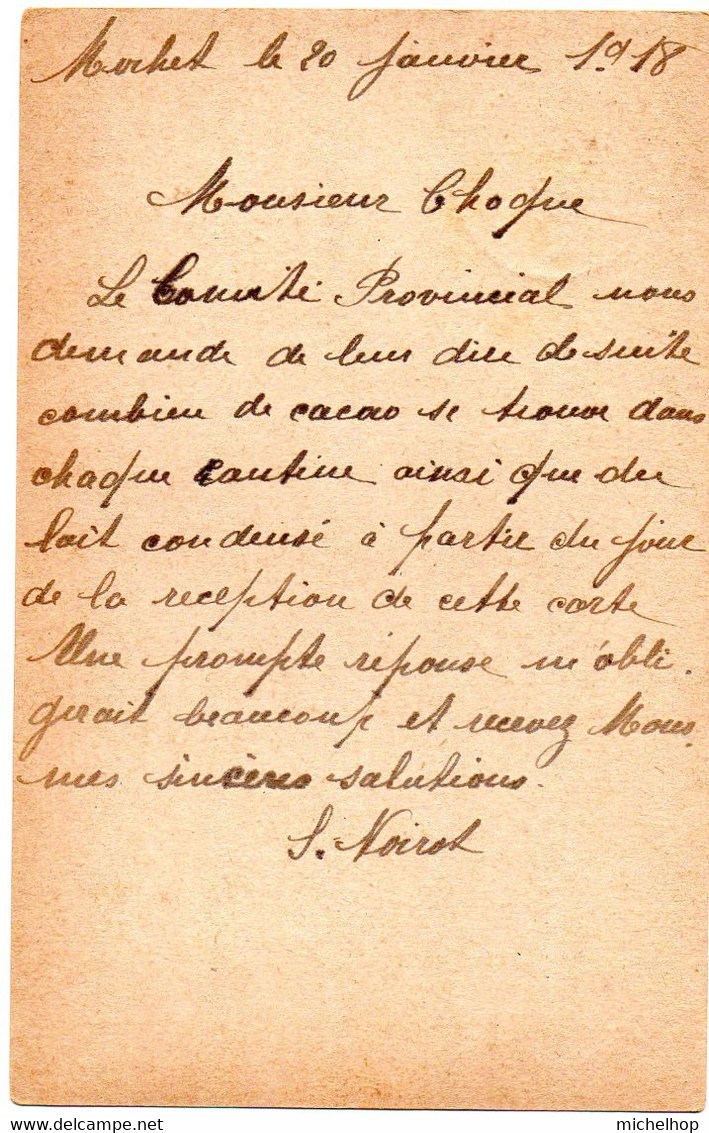 Morhet le 20 janvier 1918
Monsieur Choque
Le Comité Provincial nous
demande de leur dire de suite
combien de cacao se trouve dans
chaque cantine ainsi que du
lait condensé à partir du jour
de la reception de cette carte
Une prompte réponse m'obli.
gerait beaucoup et recevez Mons.
mes sincères salutations.
S. Noirot
michelhop